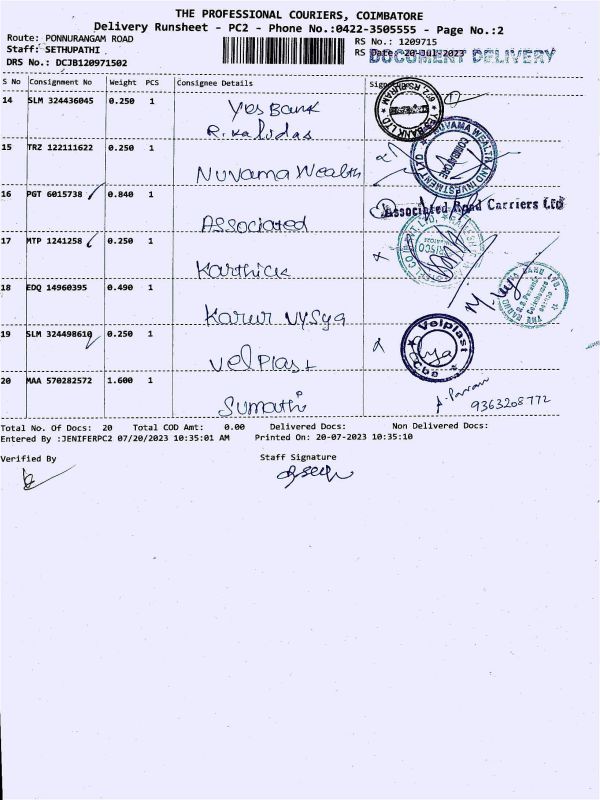 THE PROFESSIONAL COURIERS, COIMBATORE
Delivery Runsheet - PC2 - Phone No.:0422-3505555 - Page No.:2
Route: PONNURANGAM ROAD
RS No.: 1209715
Staff: SETHUPATHI
RS Date: 20-Jul-2023
DOCUMENT DELIVERY
DRS No.: DCJB120971502
S No Consignment No Weight PCS Consignee Details
14 SLM 324436045 0.250 1 Yes Bank
R. Kalidas
15 TRZ 122111622 0.250 1
Nuvama Wealth
16 PGT 6015738 0.840 1
Associated
Associated Road Carriers Ltd
17 MTP 1241258 0.250 1
Karthick
18 EDQ 14960395 0.490 1
Karur Vysya
19 SLM 324498610 0.250 1
Velplast
Velplast
Cbe
20 MAA 570282572 1.600 1
Sumathi
9363208772
Total No. Of Docs: 20 Total COD Amt: 0.00 Delivered Docs: Non Delivered Docs:
Entered By :JENIFERPC2 07/20/2023 10:35:01 AM Printed On: 20-07-2023 10:35:10
Verified By
Staff Signature